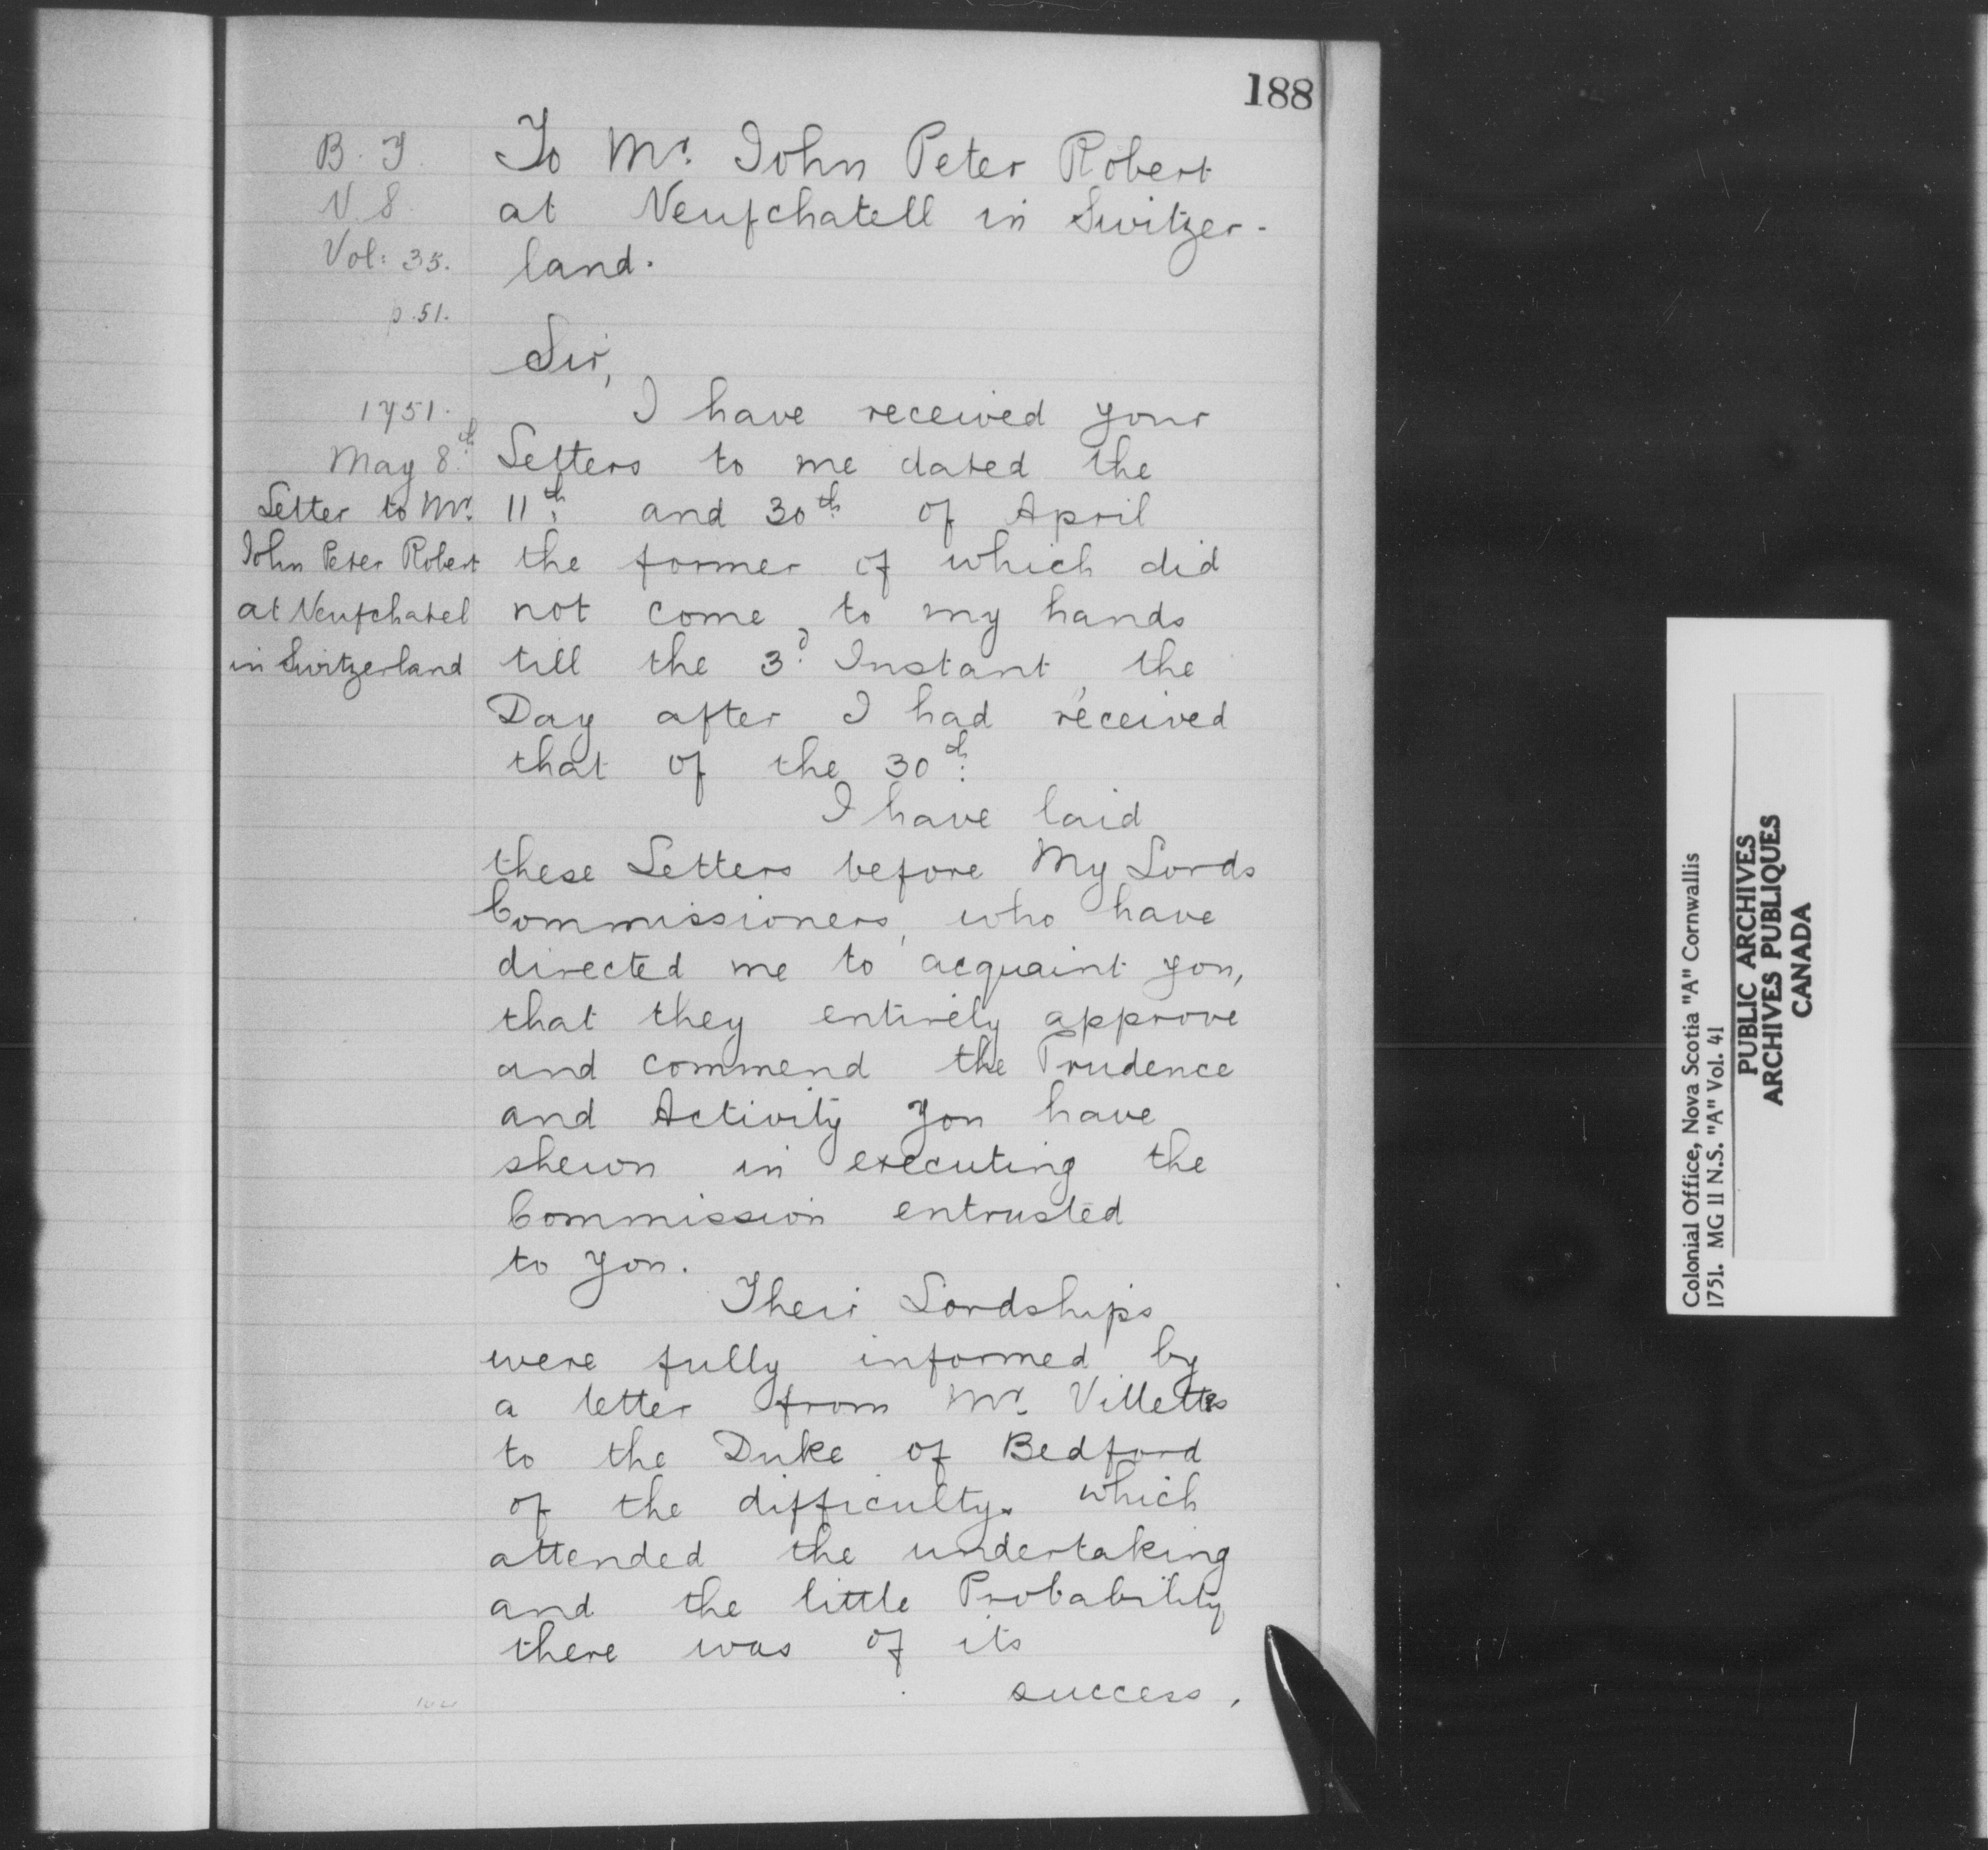 188
B. T.
N. S.
Vol: 35.
p. 51.
1751.
May 8th
Letter to Mr.
John Peter Robert
at Neufchatel
in Switzerland
To Mr. John Peter Robert
at Neufchatell in Switzer-
land.
Sir,
I have received your
Letters to me dated the
11th and 30th of April
the former of which did
not come to my hands
till the 3d Instant, the
Day after I had received
that of the 30th
I have laid
these Letters before My Lords
Commissioners, who have
directed me to acquaint you,
that they entirely approve
and commend the Prudence
and Activity you have
shewn in executing the
Commission entrusted
to you.
Their Lordships
were fully informed by
a letter from Mr. Villettes
to the Duke of Bedford
of the difficultys which
attended the undertaking
and the little Probability
there was of its
success,
Colonial Office, Nova Scotia "A" Cornwallis
1751. MG 11 N.S. "A" Vol. 41
PUBLIC ARCHIVES
ARCHIVES PUBLIQUES
CANADA